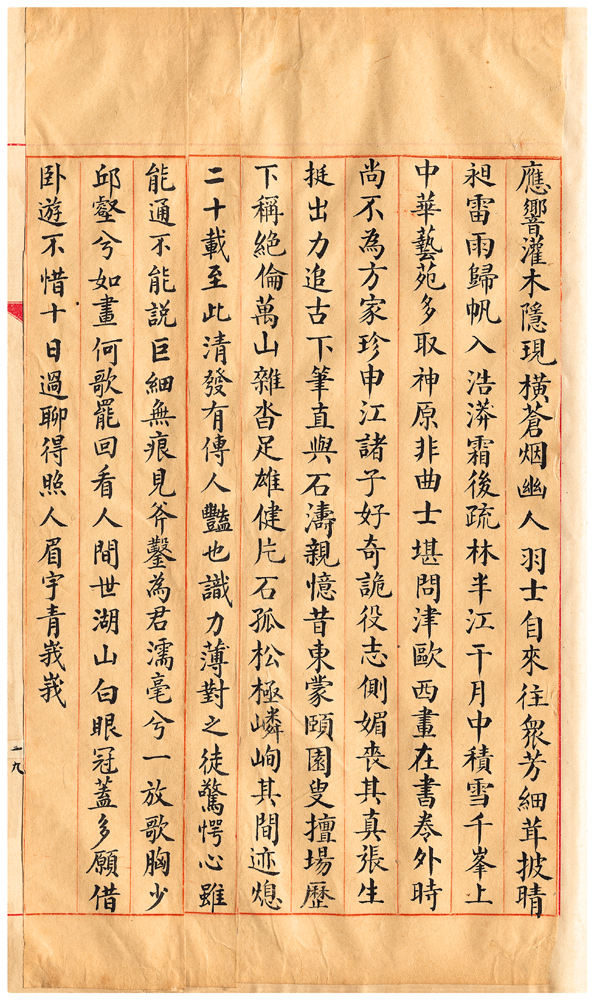 應響灌木隱現橫蒼烟幽人羽士自來往衆芳細茸披晴
昶雷雨歸帆入浩漭霜後疏林半江干月中積雪千峯上
中華藝苑多取神原非曲士堪問津歐西畫在書卷外時
尚不為方家珍申江諸子好奇詭役志側媚喪其真張生
挺出力追古下筆直與石濤親憶昔東蒙頤園叟擅場歷
下稱絕倫萬山雜沓足雄健片石孤松極嶙峋其間迹熄
二十載至此清發有傳人豔也識力薄對之徒驚愕心雖
能通不能説巨細無痕見斧鑿為君濡毫兮一放歌胸少
邱壑兮如畫何歌罷回看人間世湖山白眼冠蓋多願借
卧遊不惜十日過聊得照人眉宇青峩峩
一九